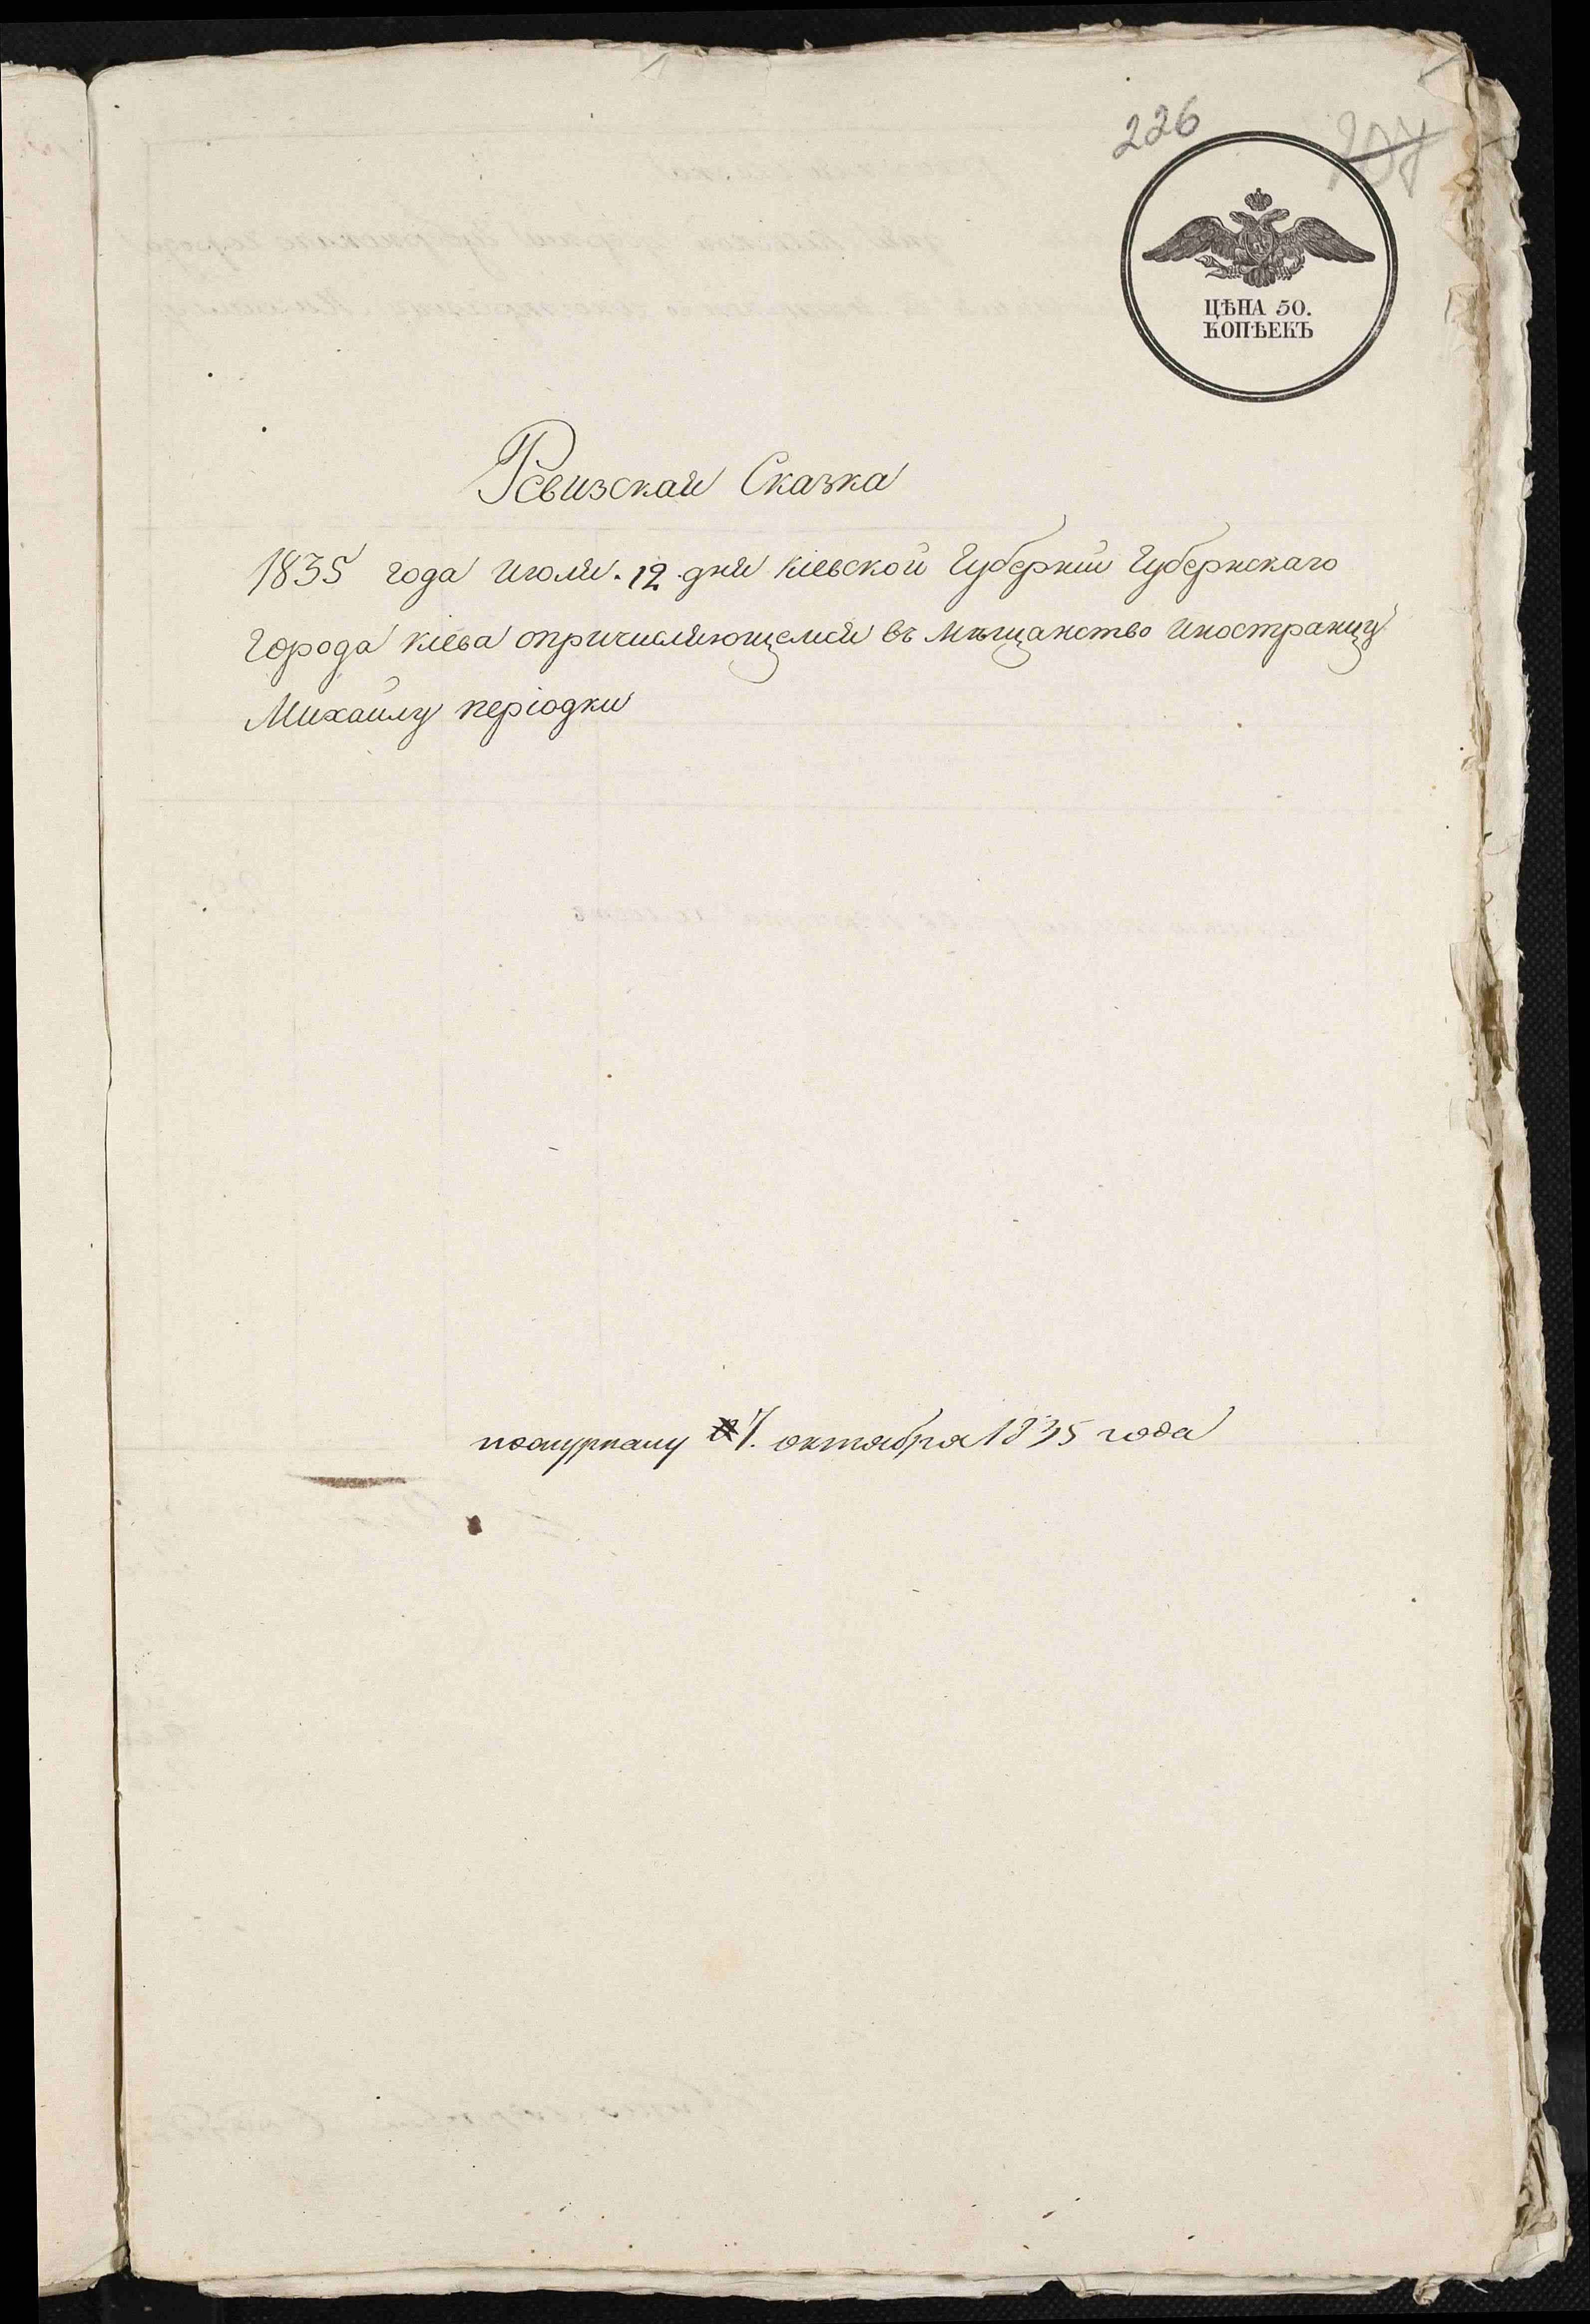 226
207
ЦѢНА 50.
КОПѢЕКЪ
Ревизская Сказка
1835 года июля. 12 дня Кіевской Губерніи Губернскаго
Города Кіева опричисляющемся въ мѣщанство иностранцу
Михайлу періодки
пожурналу 7. октября 1835 года